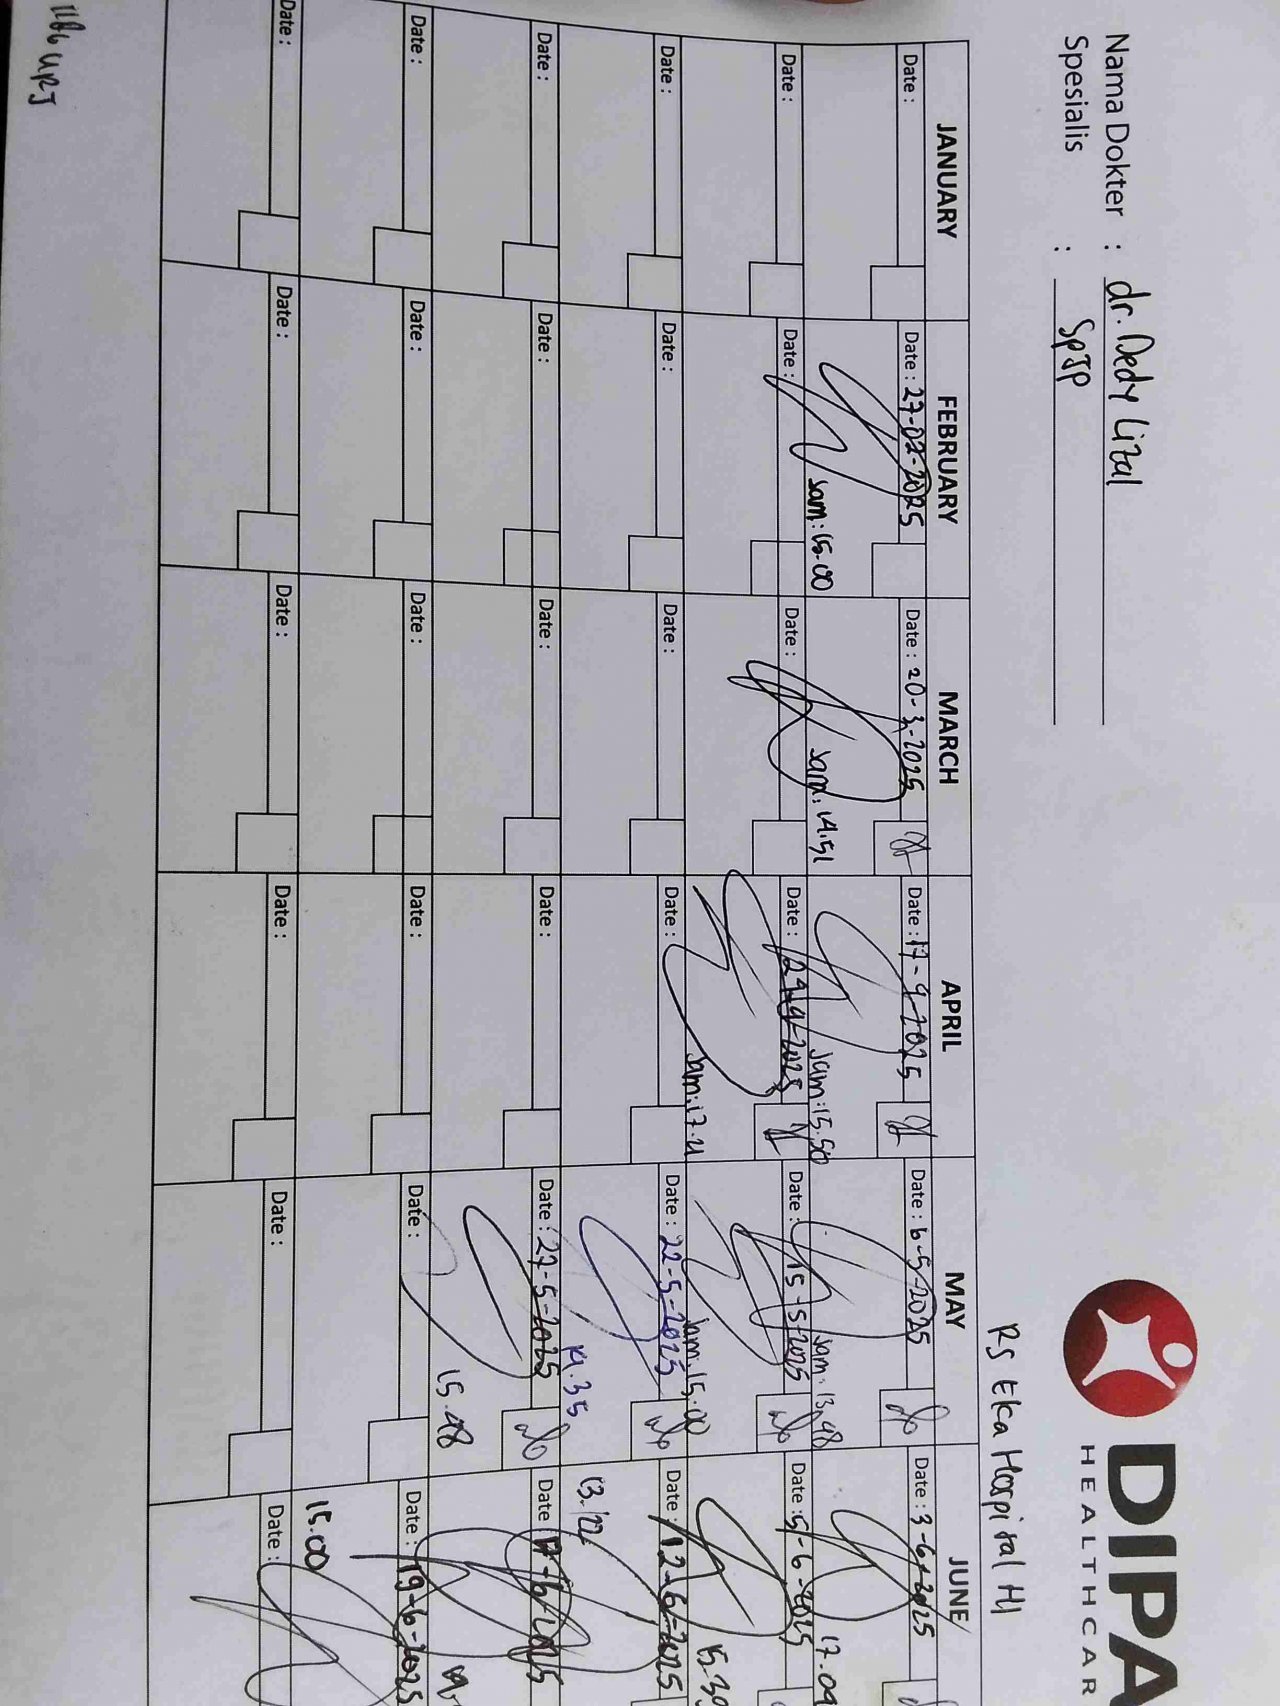 DIPA
HEALTHCAR
Nama Dokter : dr. Dedy Lizal
Spesialis : SpJP
RS Eka Hospital
JANUARY FEBRUARY MARCH APRIL MAY JUNE
Date : Date : 27-02-2025 Date : 20-3-2025 Date : 17-4-2025 Date : 6-5-2025 Date : 3-6-2025
Jam: 15.00 Jam: 14.51 Jam: 15.50 Jam: 13.48 17.09
Date : Date : Date : Date : 29-4-2025 Date : 15-5-2025 Date : 5-6-2025
Jam: 17.21 Jam. 15.00 15.30
Date : Date : Date : Date : Date : 22-5-2025 Date : 12-6-2025
14.35 13.22
Date : Date : Date : Date : Date : 27-5-2025 Date
15.48
Date : Date : Date : Date : Date : Date : 19-6-2025
15.00
Date : Date : Date : Date : Date : Date :